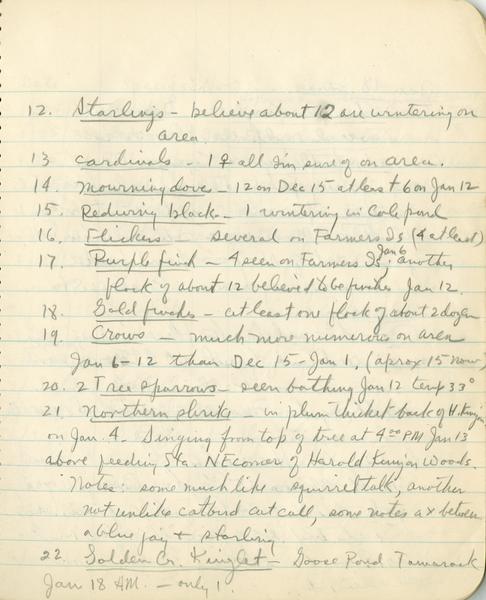 12. Starlings - believe about 12 are wintering on
area.
13 Cardinals - 1 ♀ all I'm sure of on area.
14. Mourning dove - 12 on Dec 15 at least 6 on Jan 12
15. Redwing black - 1 wintering in Cole pond
16. Flickers - several on Farmers Is (4 at least)
17. Purple finch - 4 seen on Farmers Is Jan 6; another
flock of about 12 believed to be finches Jan 12.
18. Gold finches - at least one flock of about 2 dozen
19. Crows - much more numerous on area
Jan 6-12 than Dec 15-Jan 1. (aprox 15 now)
20. 2 Tree sparrows - seen bathing Jan 12 temp 33°
21. Northern shrike - in plum thicket back of H. Kenyon
on Jan. 4. Singing from top of tree at 4:00 PM Jan 13
above feeding Sta. NE corner of Harold Kenyon Woods.
Notes: some much like squirrel talk, another
not unlike catbird cat call, some notes a x between
a blue jay + starling
22. Golden Cr. Kinglet - Goose Pond Tamarack
Jan 18 AM. - only 1.